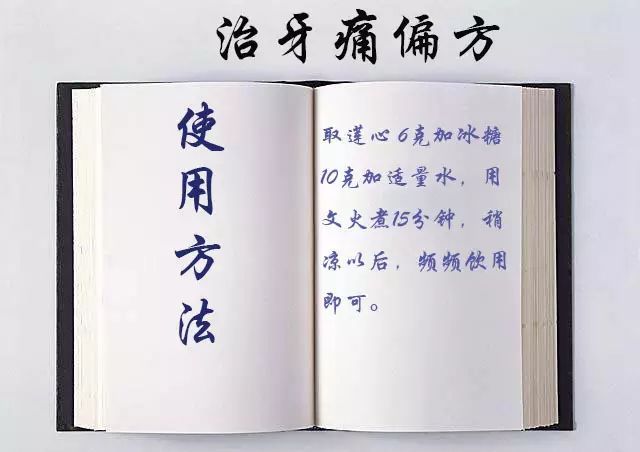 治牙痛偏方
使用方法
取莲心6克加冰糖
10克加适量水，用
文火煮15分钟，稍
凉以后，频频饮用
即可。